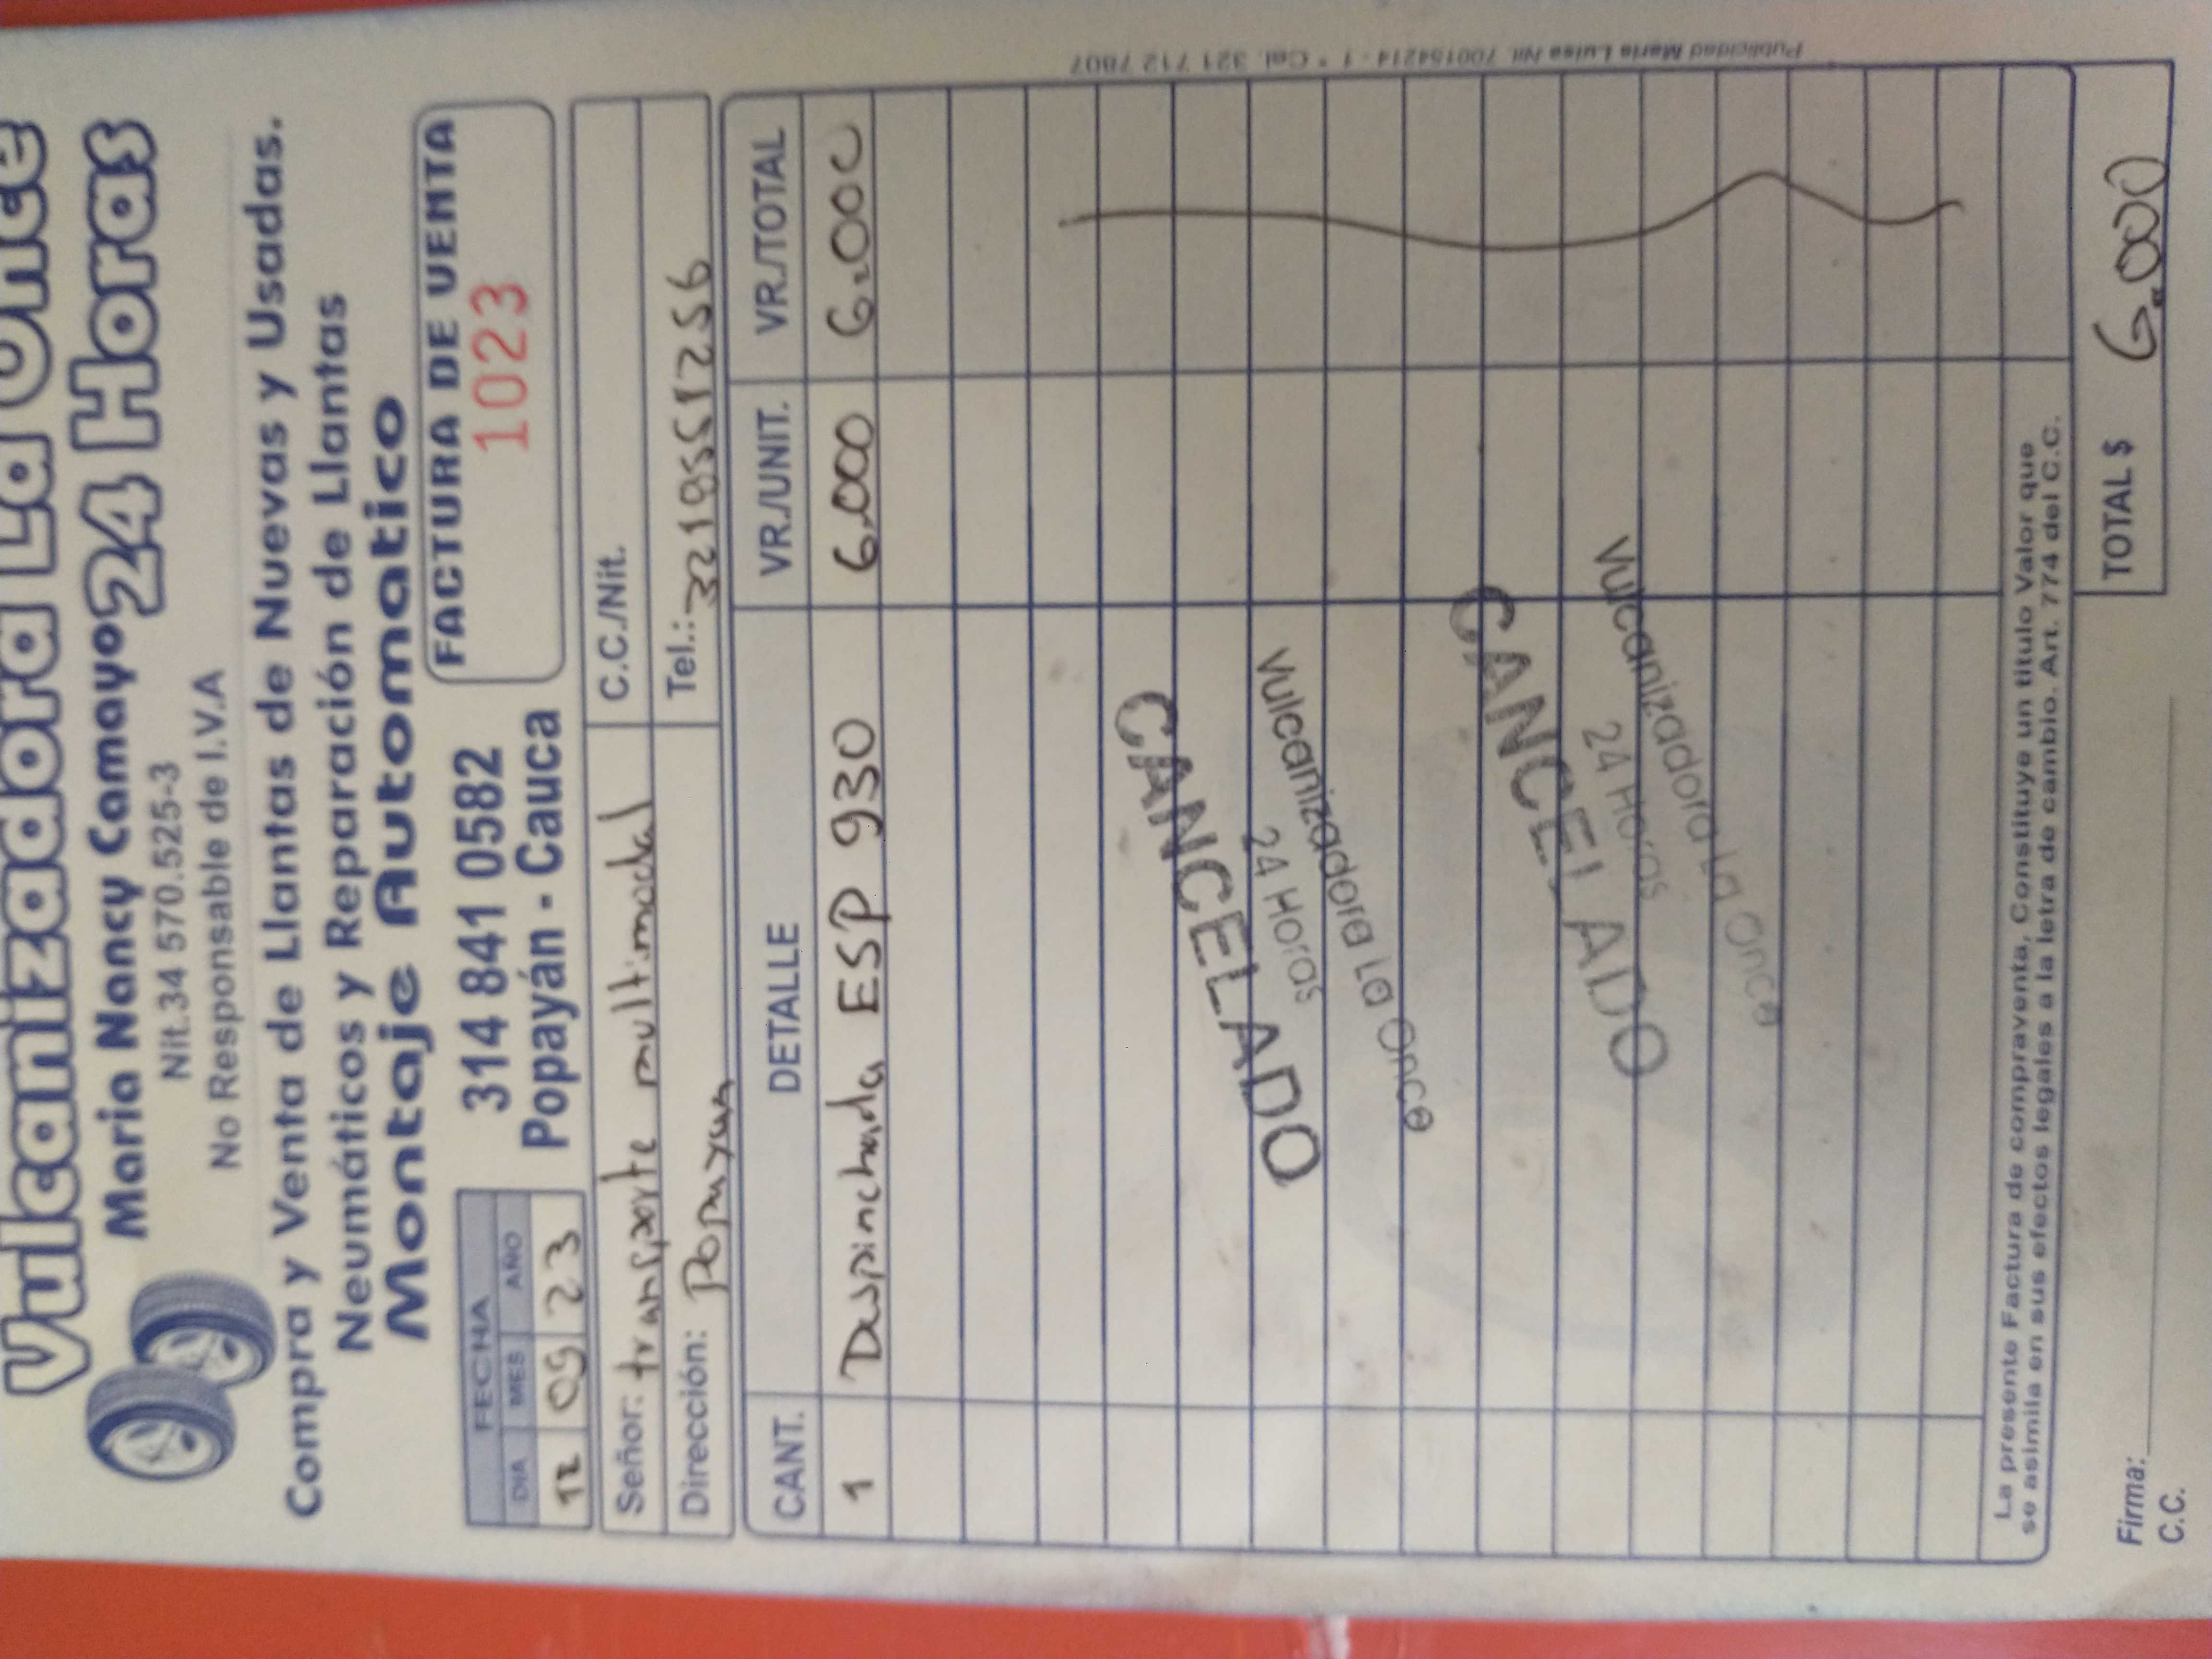 Vulcanizadora La Once
Maria Nancy Camayo 24 Horas
Nit.34 570.525-3
No Responsable de I.V.A
Compra y Venta de Llantas de Nuevas y Usadas.
Neumáticos y Reparación de Llantas
Montaje Automatico
314 841 0582
Popayán - Cauca
FACTURA DE VENTA
1023
FECHA
DIA MES AÑO
12 09 23
Señor: transporte multimodal C.C./Nit.
Dirección: Popayan Tel.: 3219551256
CANT. DETALLE VR./UNIT. VR./TOTAL
1 Despinchada ESP 930 6.000 6.000
CANCELADO
24 Horas
Vulcanizadora la Once
CANCELADO
24 Horas
Vulcanizadora la Once
La presente Factura de compraventa, Constituye un titulo Valor que
se asimila en sus efectos legales a la letra de cambio. Art. 774 del C.C.
TOTAL $ 6.000
Firma:
C.C.
Publicidad Maria Luisa Nit. 700154214 - 1 * Cel. 321 712 7807